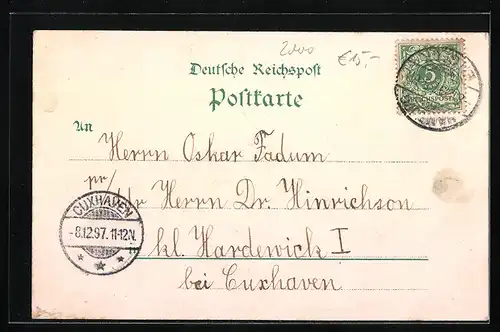 2000
€15,-
Deutsche Reichspost
Postkarte
An
Herrn Oskar Fadum
pr/
Adr Herrn Dr. Hinrichson
kl. Hardewick I
bei Cuxhaven
5
CUXHAVEN
-8.12.97. 11-12N.